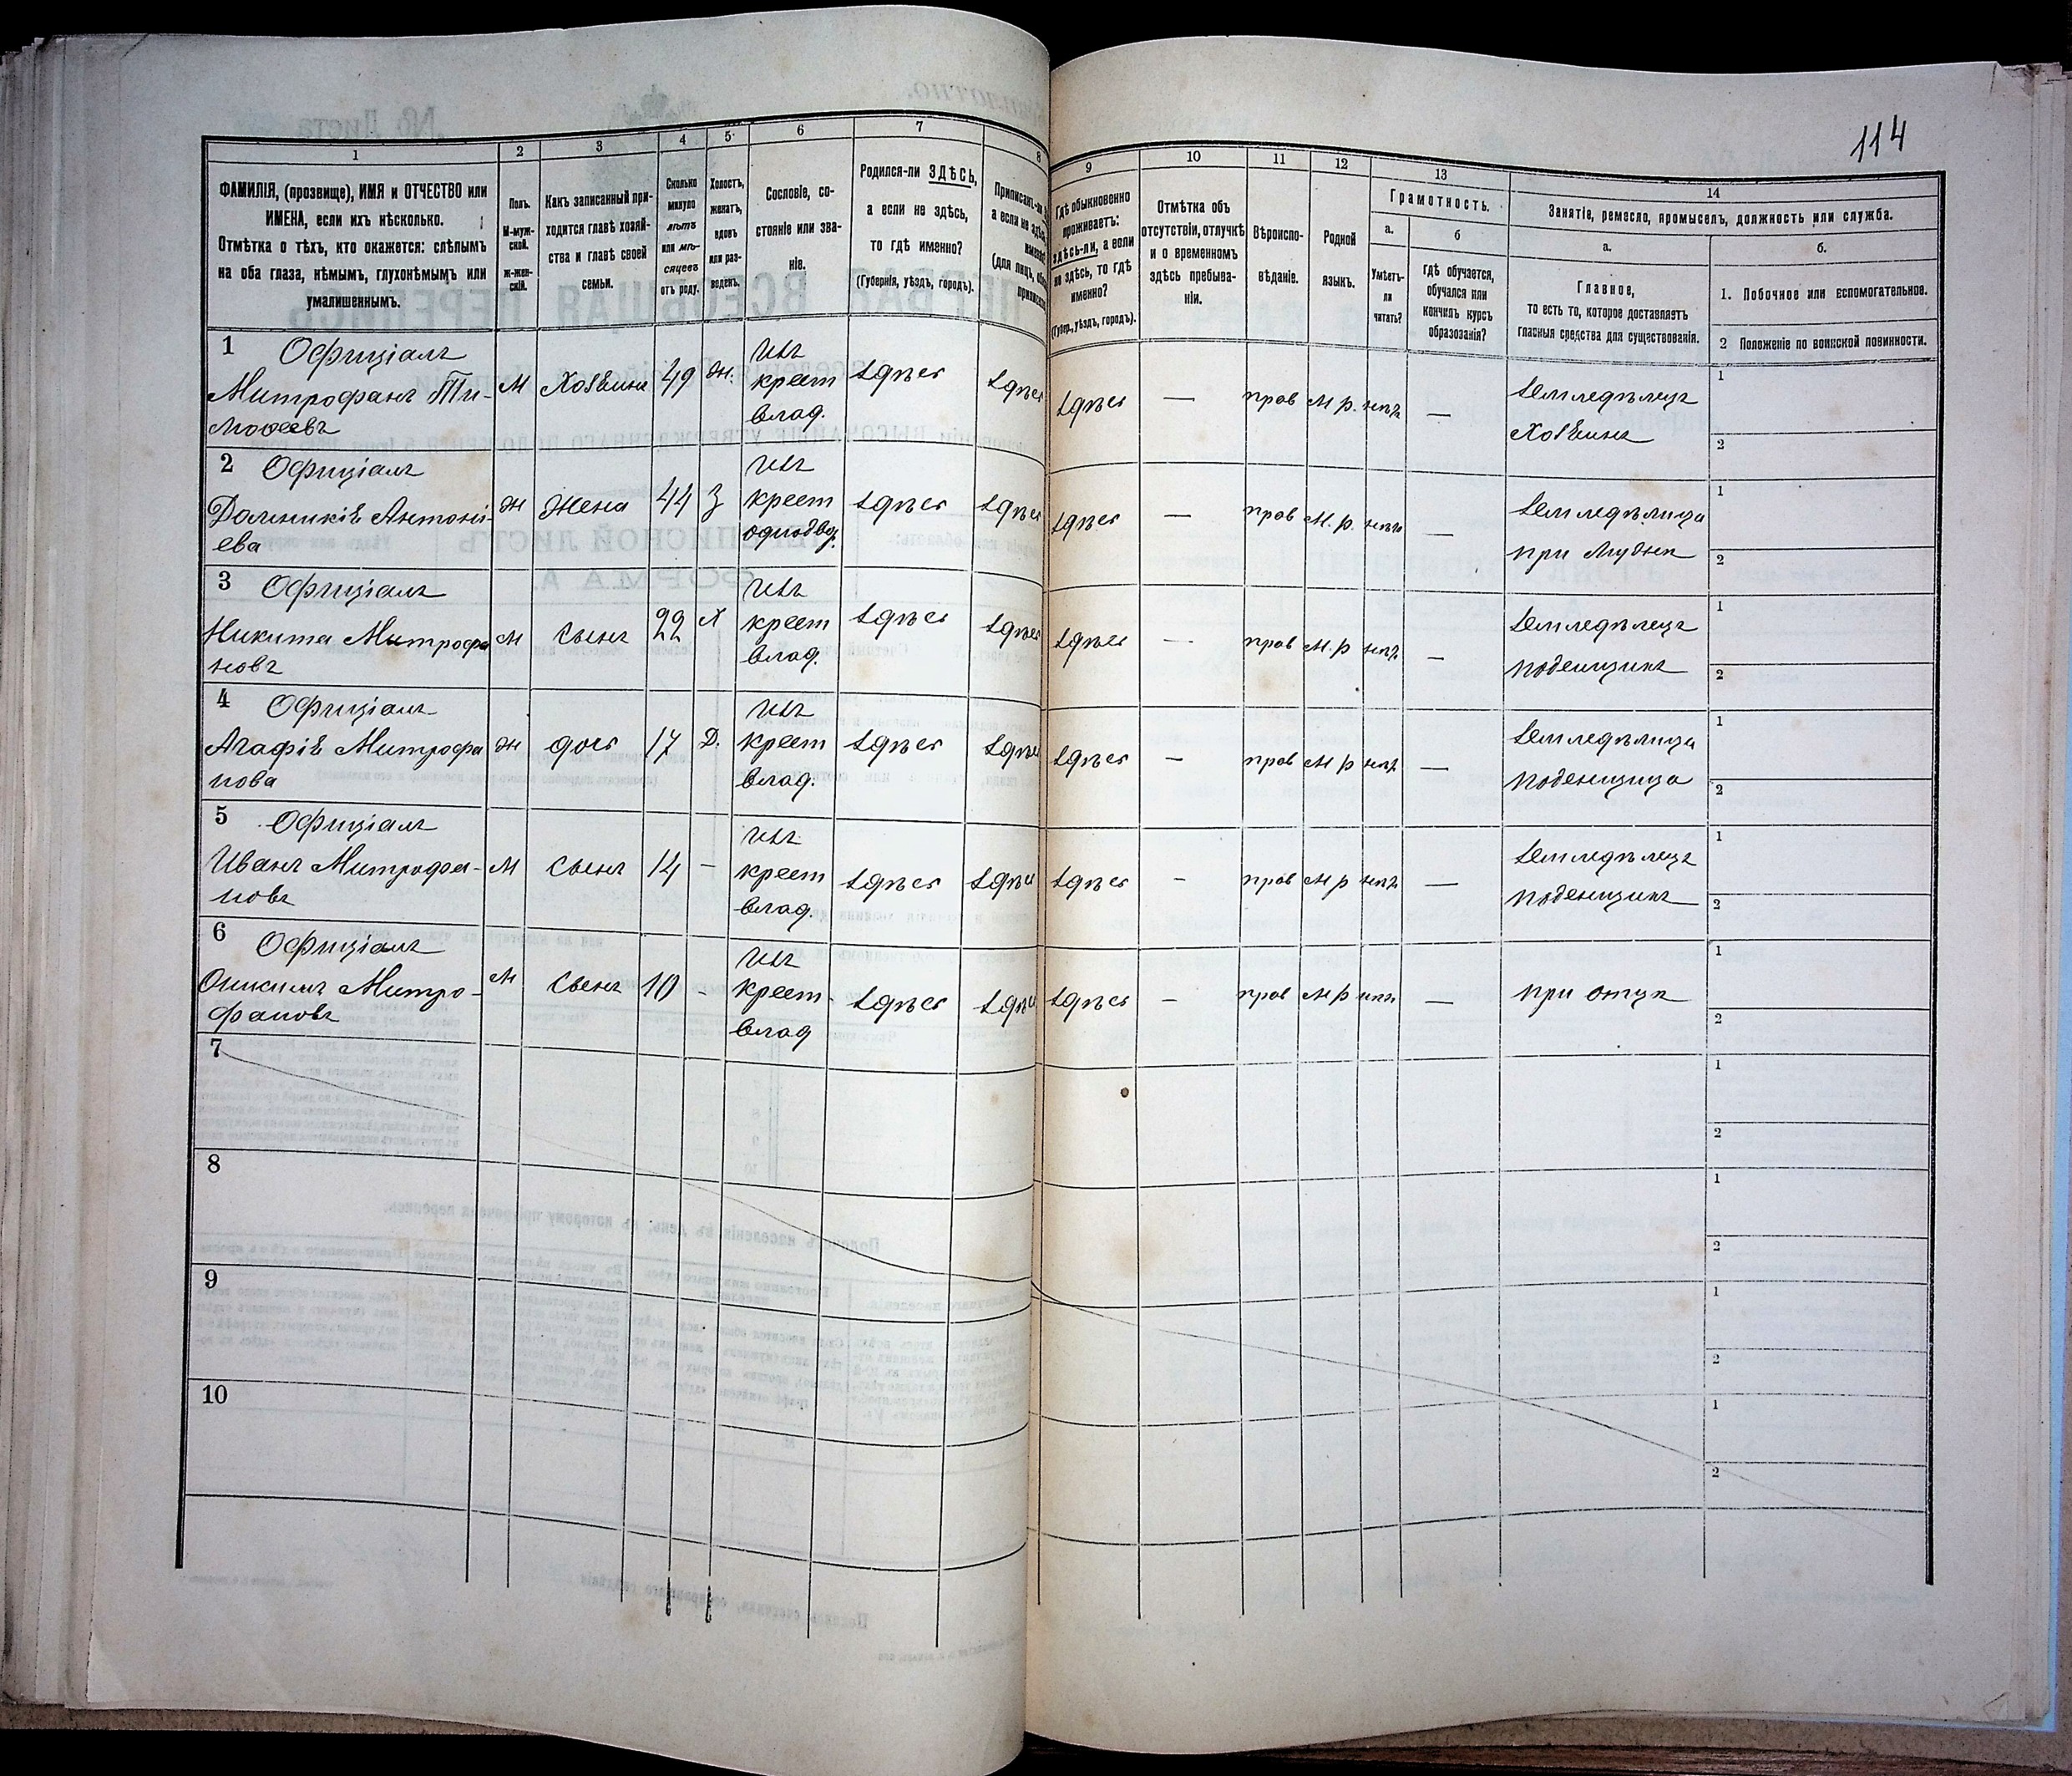 114
1
2
3
4
5
6
7
8
9
10
11
12
13
14
ФАМИЛІЯ, (прозвище), ИМЯ и ОТЧЕСТВО или
ИМЕНА, если ихъ нѣсколько.
Отмѣтка о тѣхъ, кто окажется: слѣпымъ
на оба глаза, нѣмымъ, глухонѣмымъ или
умалишеннымъ.
Полъ.
М-муж-
ской.
Ж-жен-
скій.
Какъ записанный при-
ходится главѣ хозяй-
ства и главѣ своей
семьи.
Сколько
минуло
лѣтъ
или мѣ-
сяцевъ
отъ роду.
Холостъ,
женатъ,
вдовъ
или раз-
веденъ.
Сословіе, со-
стояніе или зва-
ніе.
Родился-ли ЗДѢСЬ,
а если не здѣсь,
то гдѣ именно?
(Губернія, уѣздъ, городъ).
Гдѣ обыкновенно
проживаетъ:
здѣсь-ли, а если
не здѣсь, то гдѣ
именно?
(Губер., уѣздъ, городъ).
Отмѣтка объ
отсутствіи, отлучкѣ
и о временномъ
здѣсь пребыва-
ніи.
Вѣроиспо-
вѣданіе.
Родной
языкъ.
Грамотность.
а.
б
Умѣетъ-
ли
читать?
Гдѣ обучается,
обучался или
кончилъ курсъ
образованія?
Занятіе, ремесло, промыселъ, должность или служба.
а.
б.
Главное,
то есть то, которое доставляетъ
главныя средства для существованія.
1. Побочное или вспомогательное.
2 Положеніе по воинской повинности.
1 Официалъ
Митрофанъ Ти-
мофеевъ
М Хозяинъ 49 ж.
изъ
крест
влад.
здѣсь здѣсь здѣсь — прав М р. нѣтъ —
земледѣлецъ
Хозяинъ
1
2
2 Официалъ
Антоні-
ева
ж Жена 44 З
изъ
крест
однодвор.
здѣсь здѣсь здѣсь — прав М. р. —
земледѣлица
при мужѣ
1
2
3 Официалъ
Никита Митрофа
новъ
м Сынъ 22 Х
изъ
крест
влад.
здѣсь здѣсь здѣсь — прав М. р нѣтъ —
земледѣлецъ
поденщикъ
1
2
4 Официалъ
Агафія Митрофа
нова
ж дочь 17 Д.
изъ
крест
влад.
здѣсь здѣсь здѣсь — прав М р нѣтъ —
земледѣлица
поденщица
1
2
5 Официалъ
Иванъ Митрофа-
новъ
М Сынъ 14 —
изъ
крест
влад.
здѣсь здѣсь здѣсь - прав М р нѣтъ —
земледѣлецъ
поденщикъ
1
2
6 Официалъ
Митро-
фановъ
М Сынъ 10 -
изъ
крест
влад
здѣсь здѣсь здѣсь — прав М р —
при отцѣ
1
2
7
1
2
8
1
2
9
1
2
10
1
2